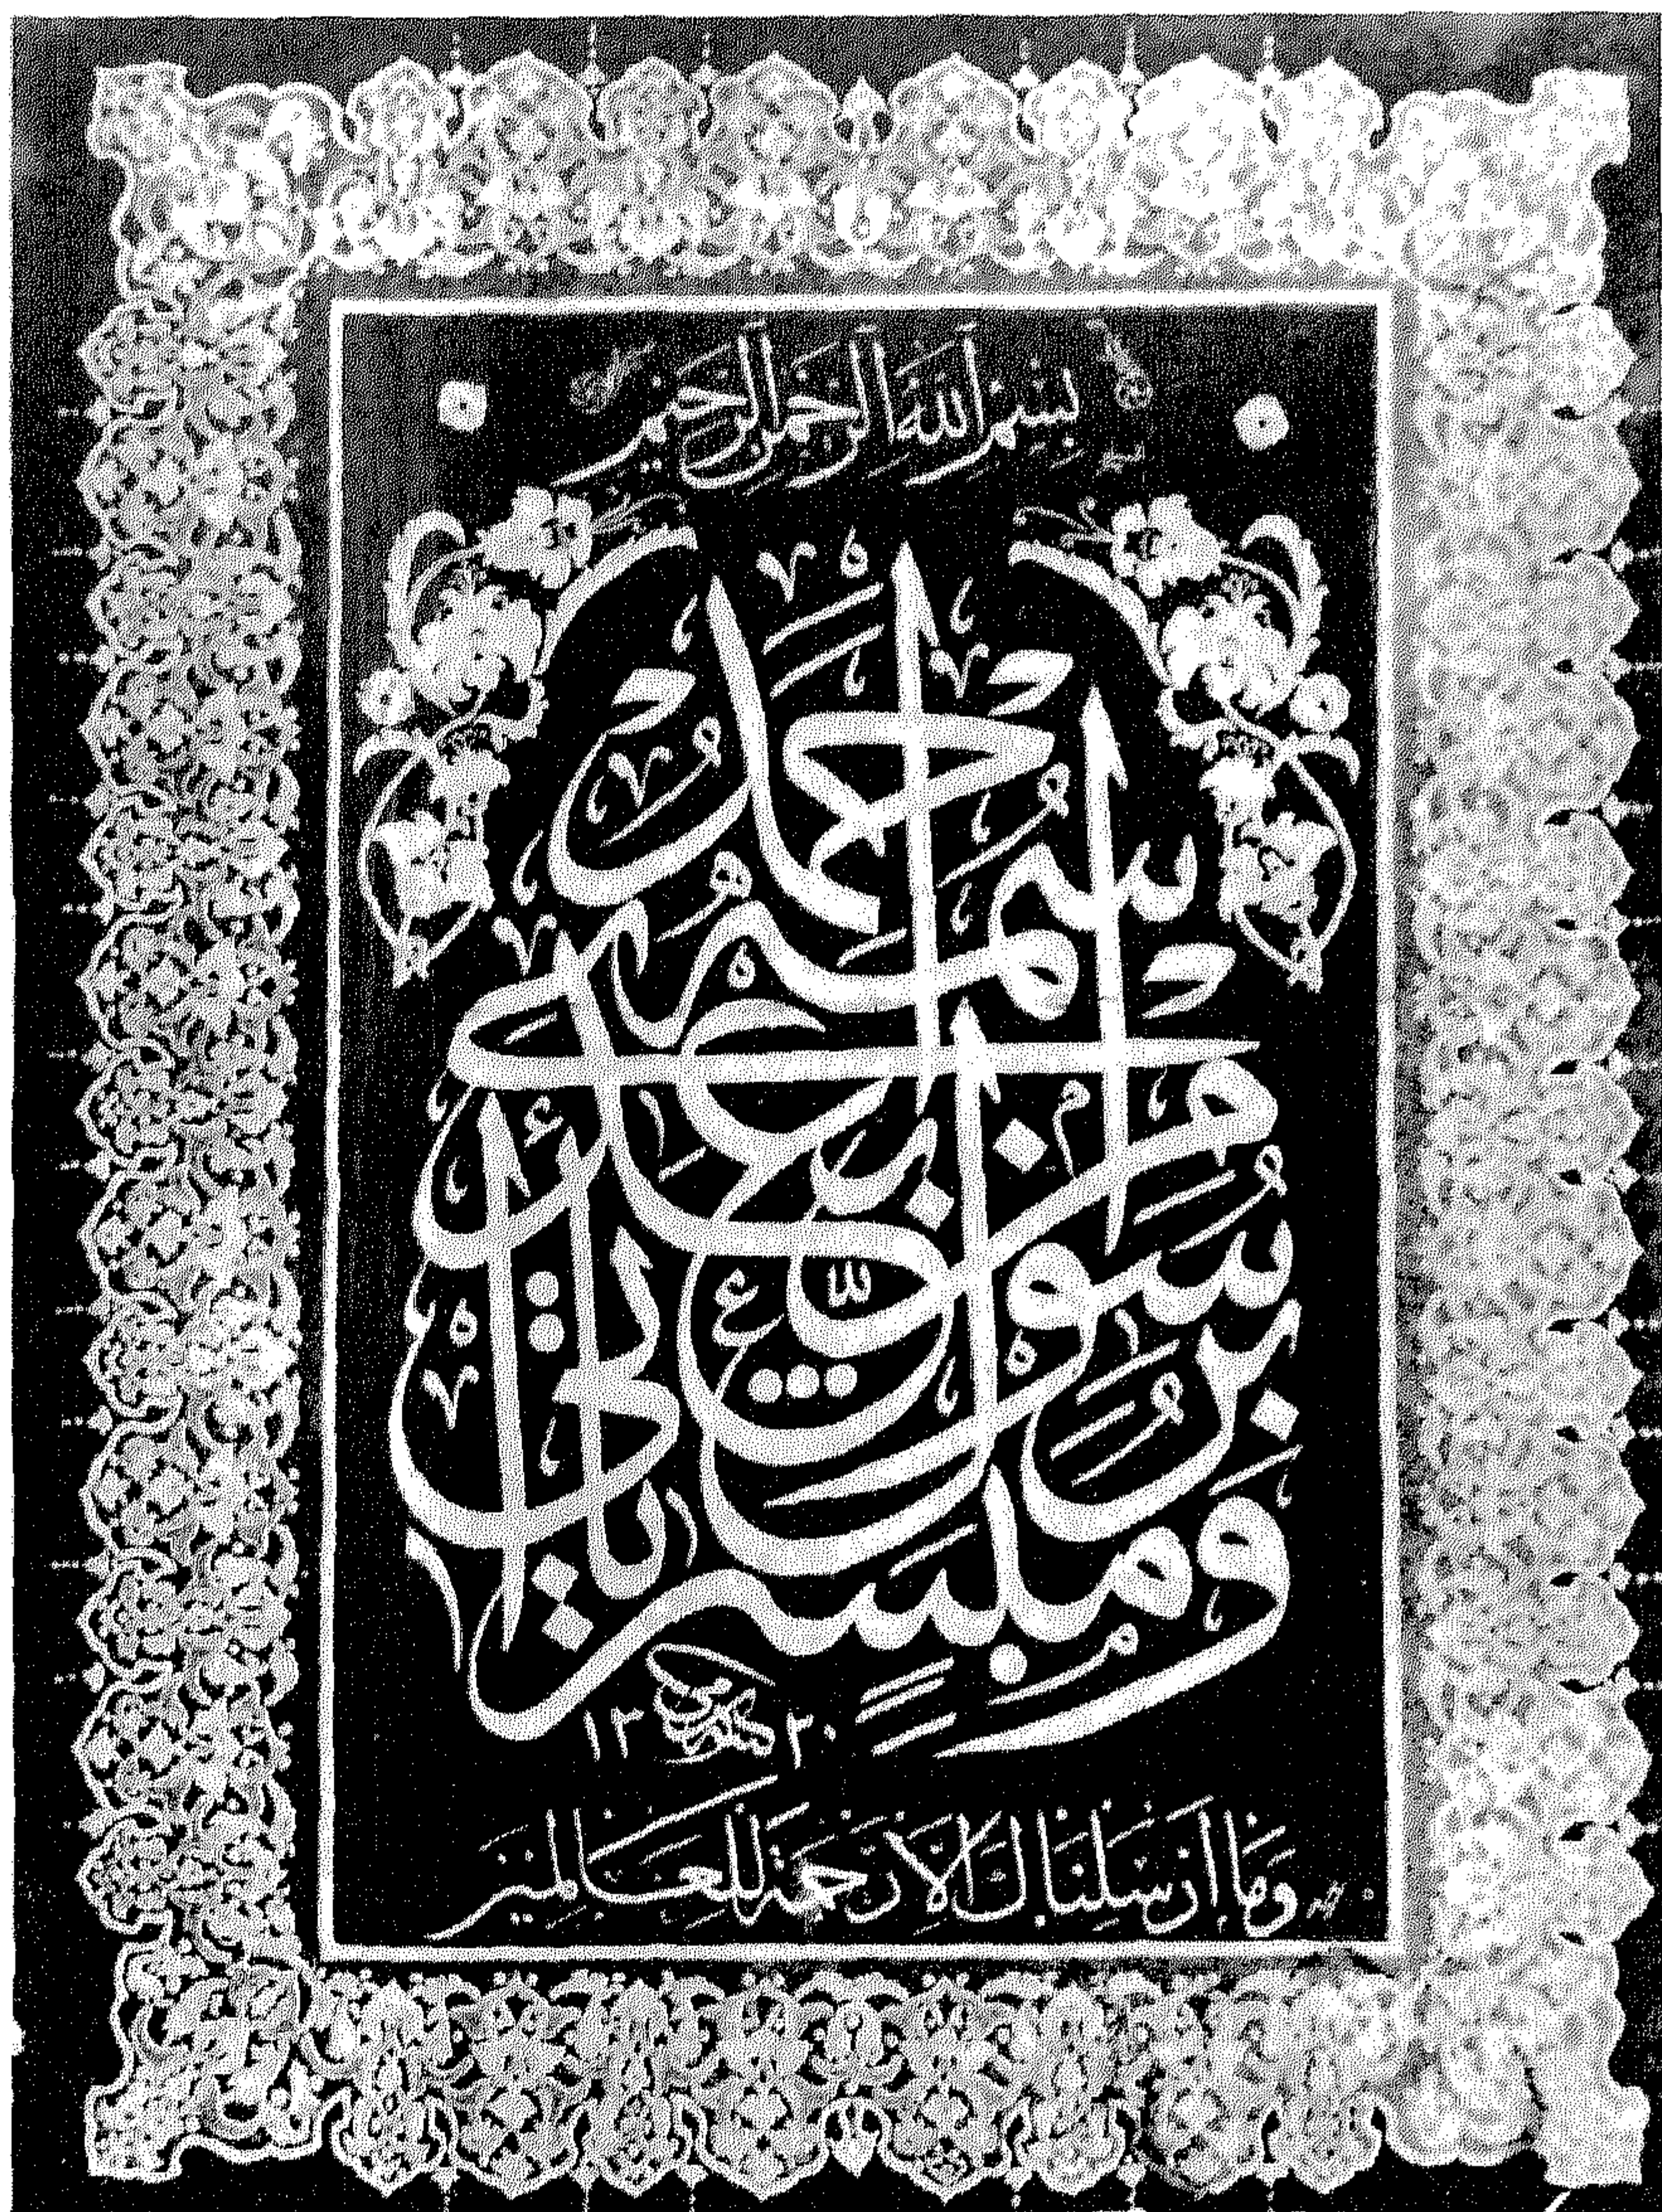 بِسْمِ اللَّهِ الرَّحْمَنِ الرَّحِيمِ
وَمُبَشِّرًا بِرَسُولٍ يَأْتِي مِنْ بَعْدِي اسْمُهُ أَحْمَدُ
١٣٢٠
وَمَا أَرْسَلْنَاكَ إِلَّا رَحْمَةً لِلْعَالَمِينَ